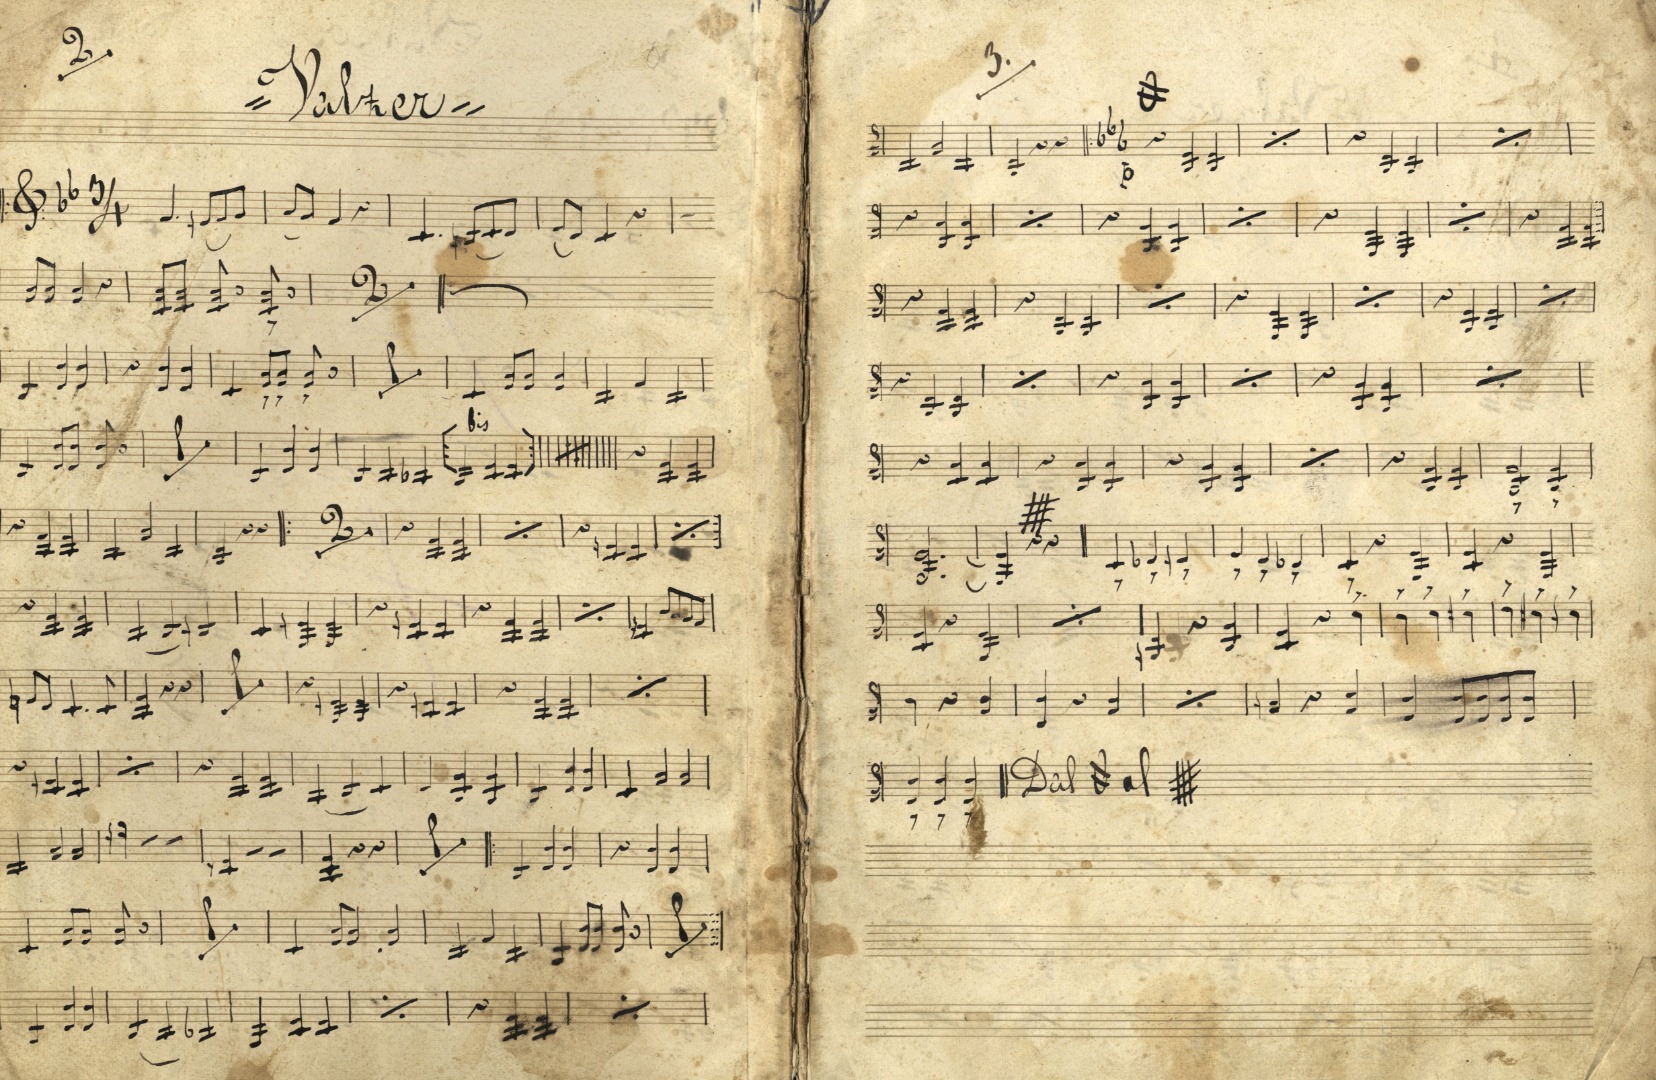 2.
"Valzer"
3/4
2.
bis
2.
3.
p
Dal 𝄋 al #